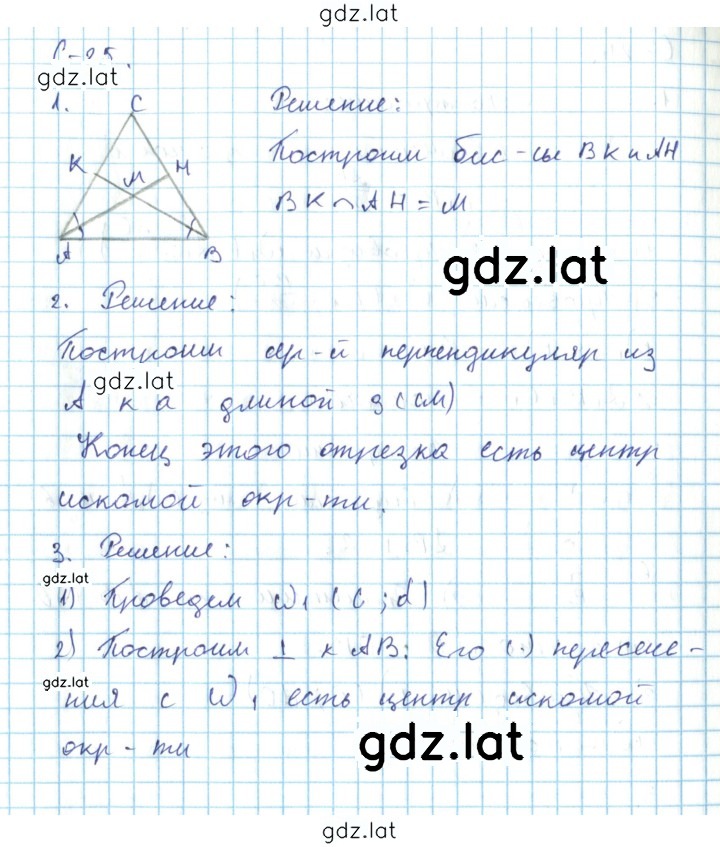 gdz.lat
gdz.lat
1.
C
K
M
H
A
B
Решение:
Построим бис-сы BK и AH
BK ∩ AH = M
gdz.lat
2. Решение:
Построим ср-й перпендикуляр из
gdz.lat
A к a длиной 3 (см)
Конец этого отрезка есть центр
искомой окр-ти.
3. Решение:
gdz.lat
1) Проведем ω₁ (C; d)
2) Построим ⊥ к AB: Его (·) пересече-
gdz.lat
ния с ω₁ есть центр искомой
окр-ти
gdz.lat
gdz.lat